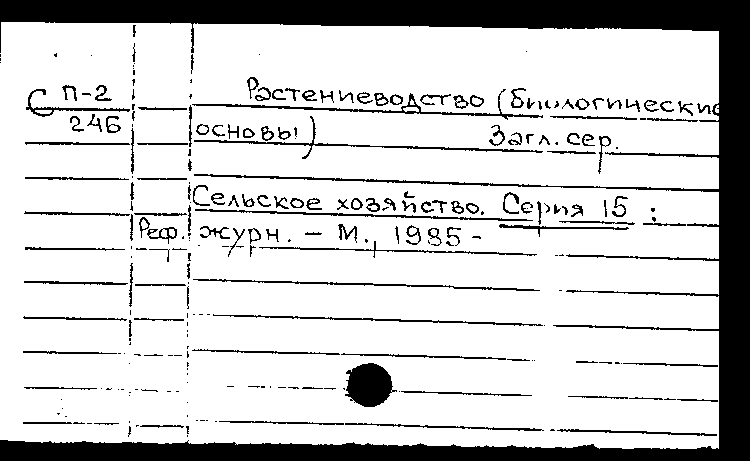 С П-2 Растениеводство (биологические
24Б основы)
Загл. сер.
Сельское хозяйство. Серия 15 :
Реф. журн. – М., 1985 -